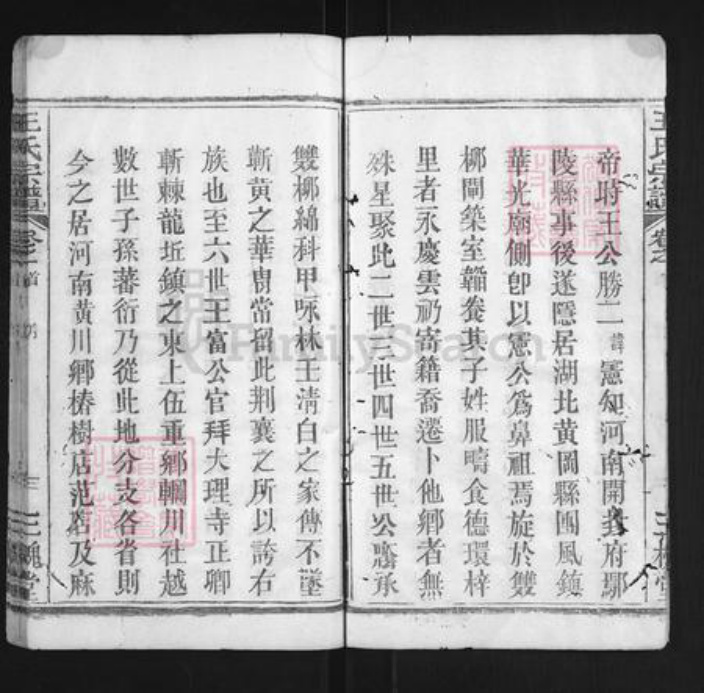 帝時王公勝二諱憲知河南開封府鄢
陵縣事後遂隱居湖北黃岡縣團風鎮
華光廟側卽以憲公爲鼻祖焉旋於雙
柳閘築室韜養其子姓服疇食德環梓
里者永慶雲礽寄籍喬遷卜他鄉者無
殊星聚此二世三世四世五世公派承
雙柳綿科甲咏林王淸白之家傳不墜
蘄黃之華冑常留此荆襄之所以誇右
族也至六世王富公官拜大理寺正卿
斬棘龍坵鎮之東上伍重鄉輞川社越
數世子孫蕃衍乃從此地分支各省則
今之居河南黃川鄉椿樹店范店及麻
王氏宗譜
卷之首
三槐堂
王氏宗譜
卷之
三槐堂
FamilySearch